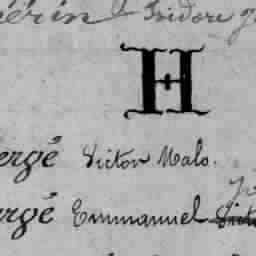 uérin Isidore
H
ergé Victor Malo.
ergé Emmanuel